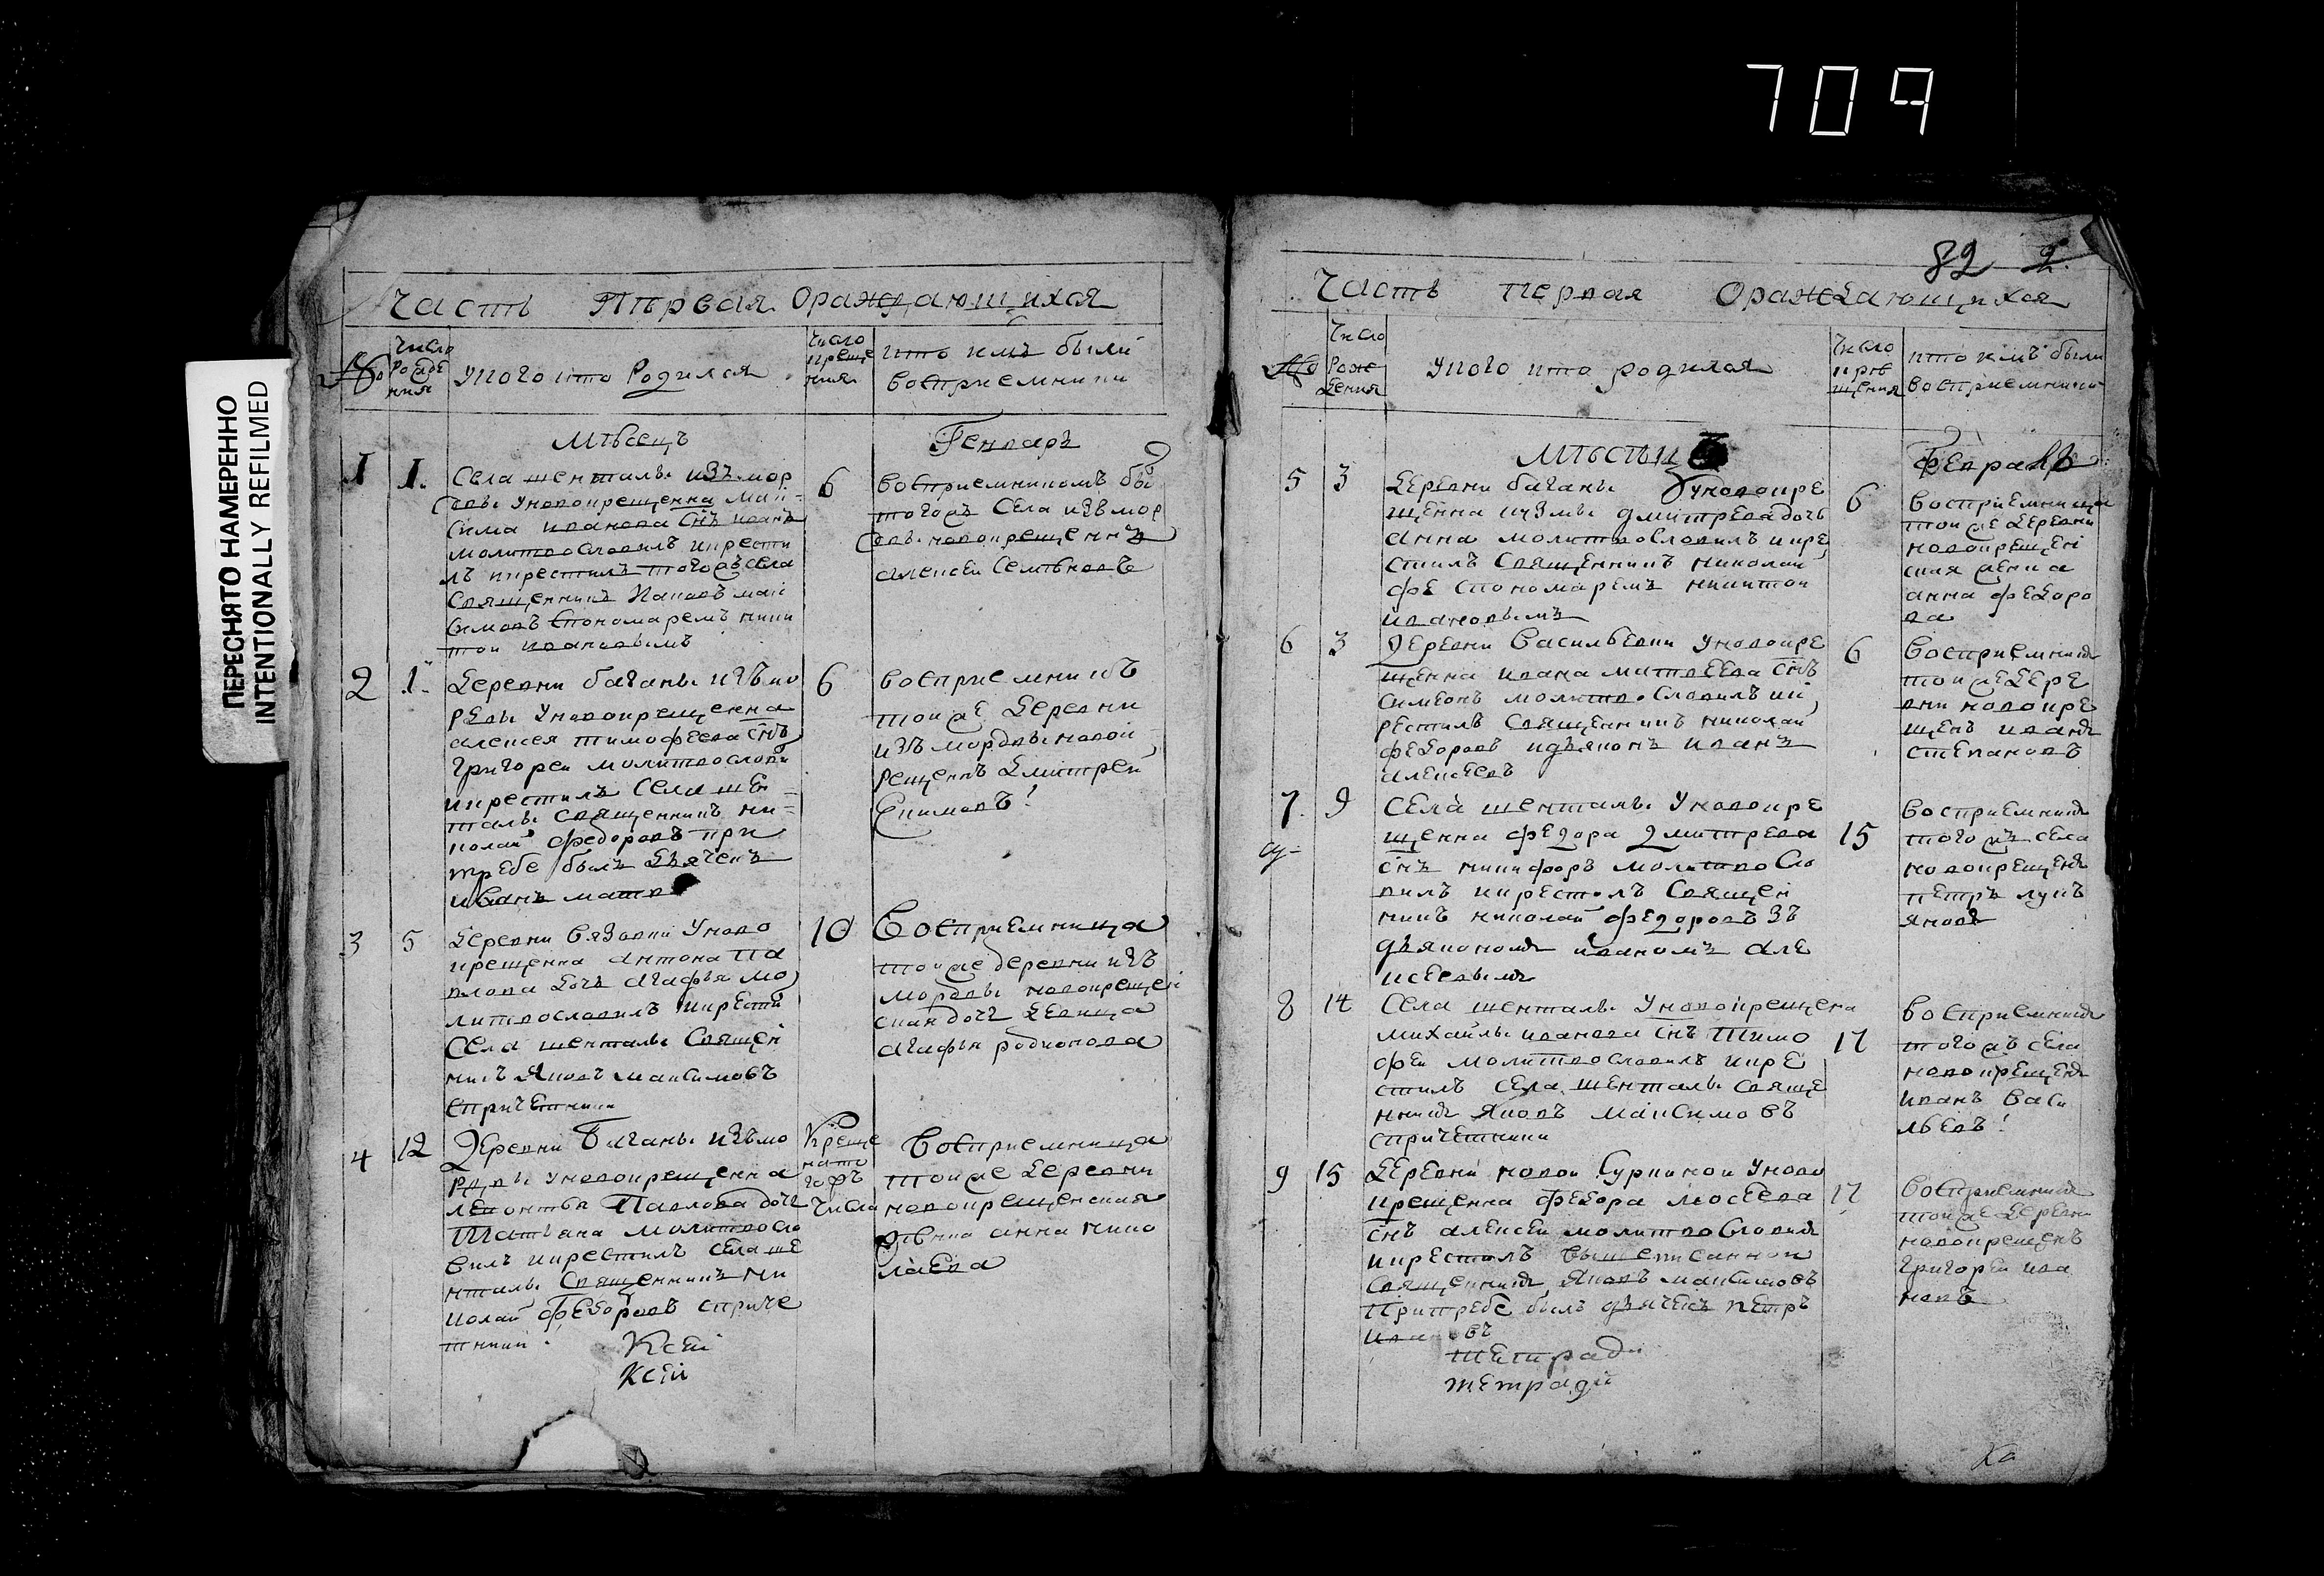 709
ПЕРЕСНЯТО НАМЕРЕННО
INTENTIONALLY REFILMED
Часть Первая Ораждающихся
№
Число
Рожде
ния
Укого кто Родился
Число
креще
ния
кто имъ были
восприемники
Мѣсецъ
Генваръ
1
1.
Села шенталы изъ мор
двы уновокрещенна Май
сима иванова снъ иванъ
молитвословилъ икрести
лъ икрестилъ тогожъ села
Священникъ Иаковъ май
симовъ спономаремъ ники
тои ивановымъ
6
восприемникомъ бы
тогожъ Села изъ мор
двы новокрещеннъ
алексеи Семѣновъ
2
1.
деревни баганы изъ мо
рдвы уновокрещенна
алексея тимофеева снъ
григореи молитвослови
икрестилъ Села шен
талы священникъ ни
колаи федоровъ при
требе былъ дьячекъ
иванъ матв
6
восприемникъ
тойже деревни
изъ мордвы новок
рещенъ дмитреи
Екимовъ
3
5
деревни вязовки уново
крещенна антона па
влова дочь агафья мо
литвословилъ икрести
Села шенталы Священ
никъ Яковъ максимовъ
спричетники
10
Восприемница
тойже деревни изъ
мордвы новокрещен
скаядочь девица
агафья родионова
4
12
Деревни Баганы изъмо
рдвы уновокрещенна
леонтья Павлова дочь
Татьяна молитвосло
вилъ икрестилъ села ше
нталы Священникъ ни
колаи Федоровъ сприче
тники
Креще
нато
гожъ
числа
Восприемница
тойже деревни
новокрещенская
девка анна нико
лаева
Ксеи
ксеи
82 2.
Часть первая Ораждающихся
№
Число
Рож
дения
Укого кто родился
Число
кре
щения
кто имъ были
восприемники
Мѣсецъ
Февралъ
5
3
деревни баганы уновокре
щенна кузмы дмитрева дочь
анна молитвословилъ икре
стилъ Священникъ николаи
фе спономаремъ никитои
ивановымъ
6
восприемница
тоиже деревни
новокрещен
ская женка
анна федоро
ва
6
3
Деревни Васильевки уновокре
щенна ивана матвеева снъ
симеонъ молитвословилъ ик
рестилъ Священникъ николаи
федоровъ идьяконъ иванъ
алексеевъ
6
восприемникъ
тоиже дере
вни новокре
щенъ иванъ
степановъ
7.
9
Села шенталы уновокре
щенна федора дмитрева
снъ никифоръ молитвосло
вилъ икрестилъ Священ
никъ николаи федоровъ зъ
дьякономъ иваномъ але
ксеевымъ
15
восприемникъ
тогожъ села
новокрещенъ
петръ лукъ
яновъ
8
14
Села шенталы уновокрещена
михаилы иванова снъ Тимо
феи молитвословилъ икре
стилъ села шенталы священ
никъ Яковъ максимовъ
спричетники
17
восприемникъ
тогожъ села
новокрещенъ
иванъ васи
льевъ
9
15
деревни новои Суркинои уново
крещенна федора мосеева
снъ алексеи молитвословилъ
икрестилъ вышеписаннои
Священникъ Яковъ максимовъ
Притребе былъ дьячекъ петръ
17
восприемникъ
тоиже деревни
новокрещенъ
григореи ива
новъ
тетради
тетради